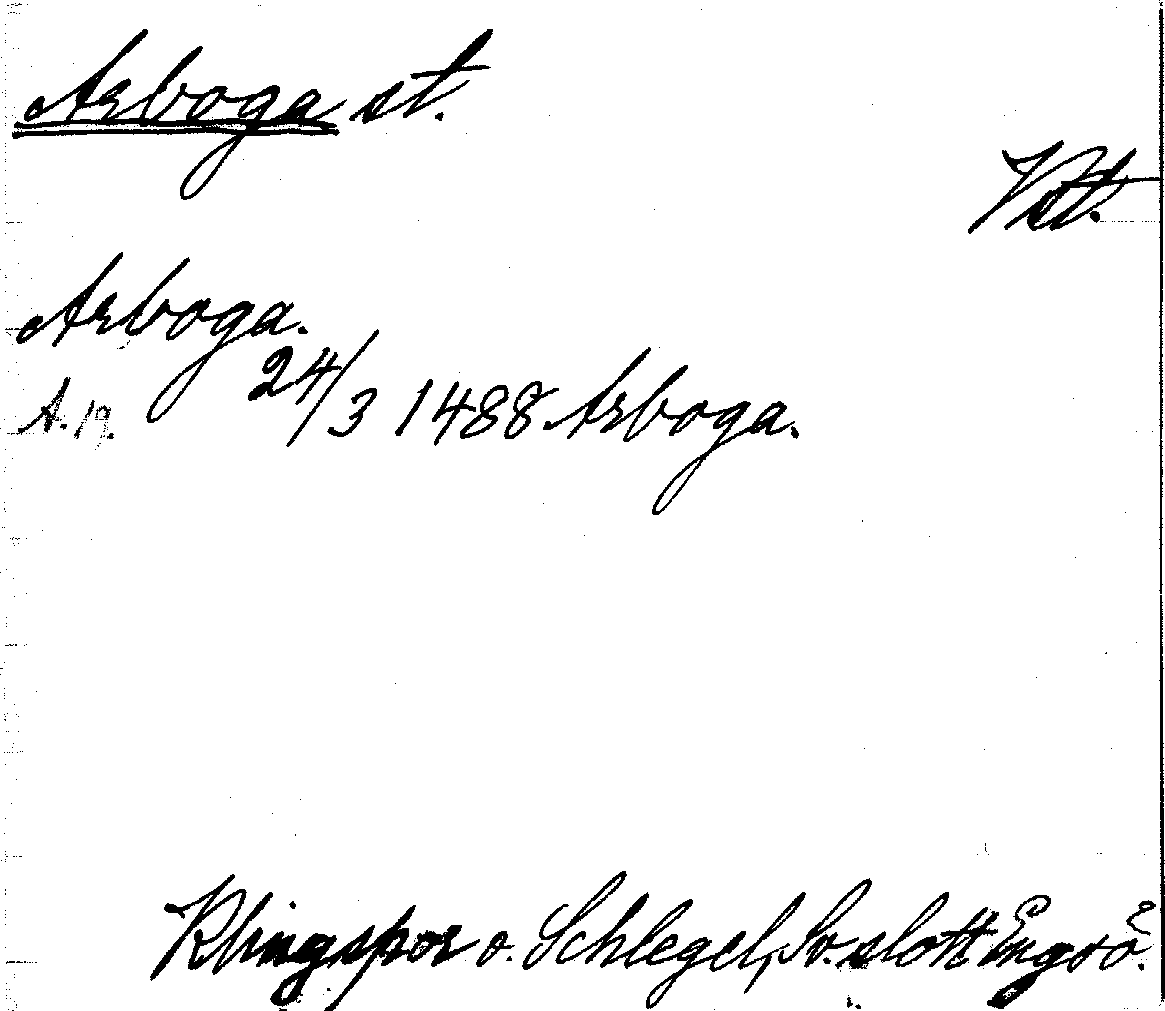 Arboga st.
Vstl.
Arboga.
24/3 1488 Arboga.
A. 19.
Klingspor o. Schlegel, Sv. slott Engsö.